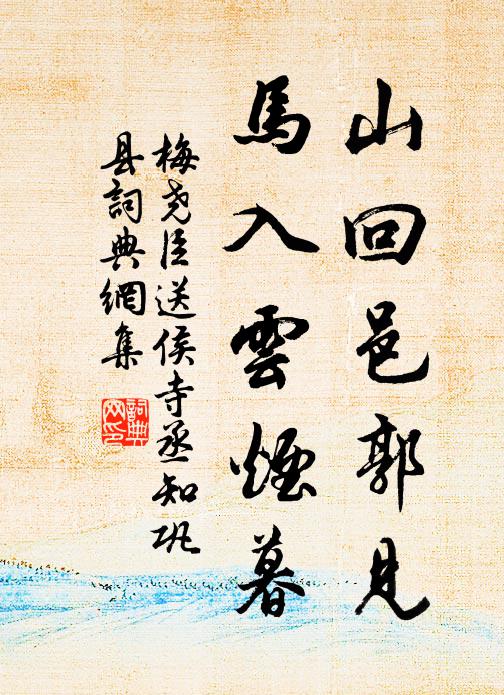 山回邑郭見
馬入雲煙暮
梅尧臣送侯寺丞知巩
县詞典網集
詞典网印